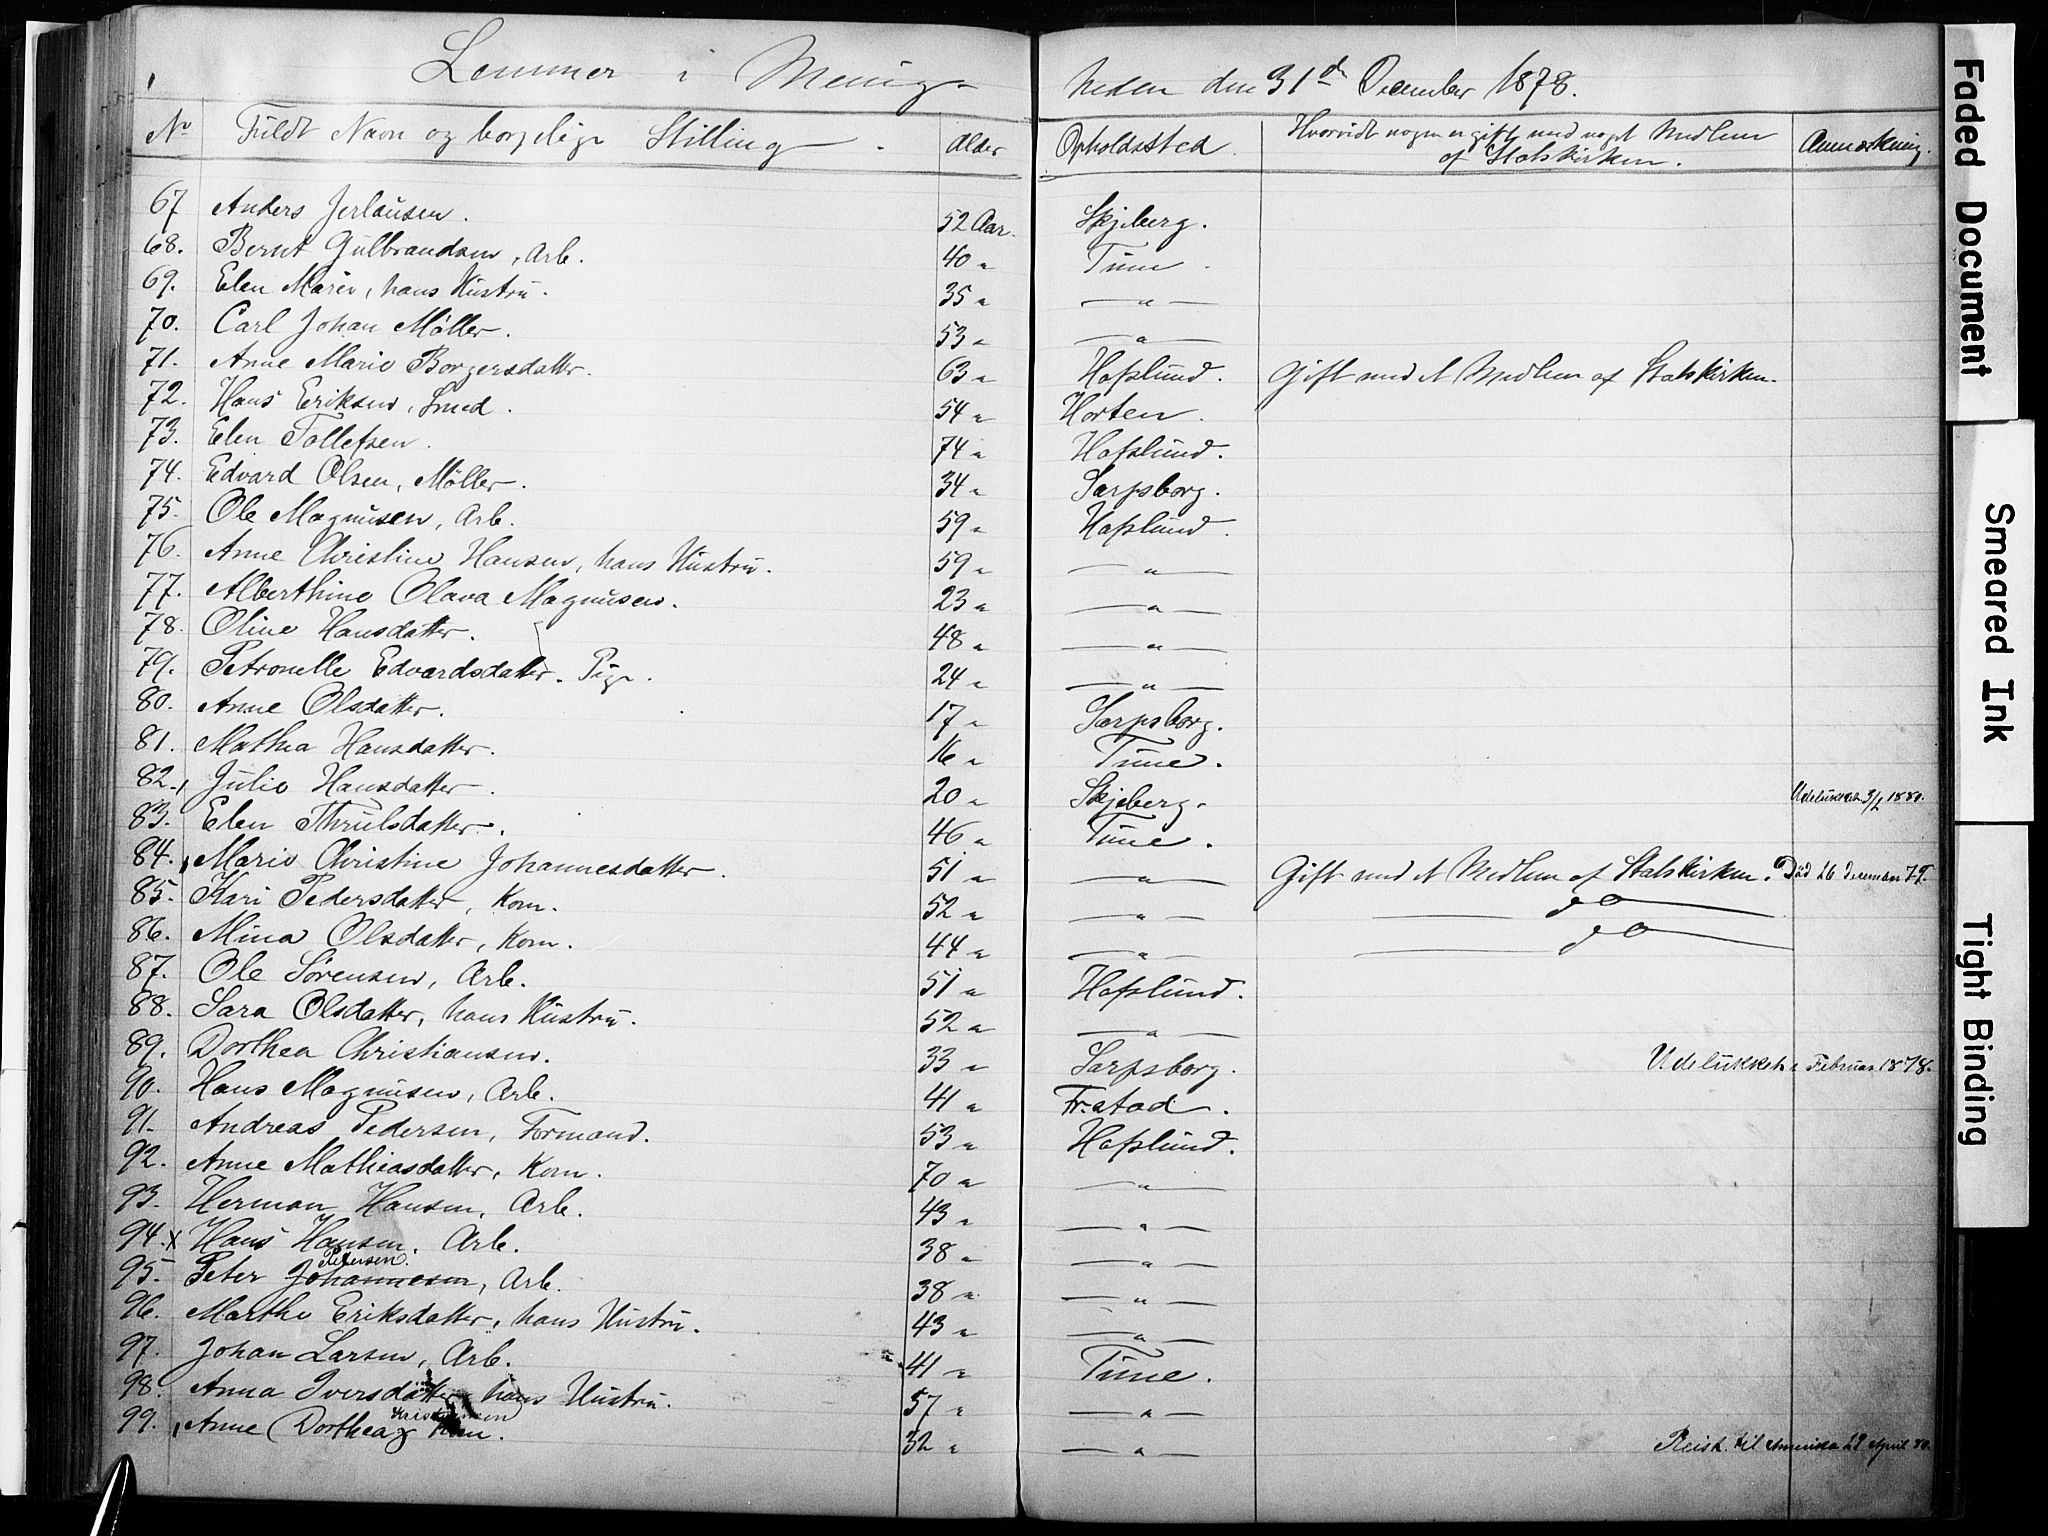 Lemmer i Menig- heden den 31te December 1878.
No Fuldt Navn og borgelige Stilling. Alder Opholdssted. Hvorvidt nogen er gift med noget Medlem af Statskirken. Anmærkning.
67 Anders Jerlausen. 52 Aar. Skjeberg.
68. Bernt Gulbrandsen, Arb. 40 " Tune.
69. Elen Marie, hans Hustru. 35 " — " —
70. Carl Johan Möller. 53 " — " —
71. Anne Marie Borgersdatter. 63 " Hafslund. Gift med et Medlem af Statskirken.
72. Hans Eriksen, Smed. 54 " Horten.
73. Elen Tollefsen. 74 " Hafslund.
74. Edvard Olsen, Möller. 34 " Sarpsborg.
75. Ole Magnusen, Arb. 59 " Hafslund.
76. Anne Christine Hansen, hans Hustru. 59 " — " —
77. Alberthine Olava Magnusen. 23 " — " —
78. Oline Hansdatter. 48 " — " —
79. Petronelle Edvardsdatter. Pige. 24 " — " —
80. Anne Olsdatter. 17 " Sarpsborg.
81. Mathea Hansdatter. 16 " Tune.
82. Julie Hansdatter. 20 " Skjeberg. Udelukket 3/2 1880.
83. Elen Thrulsdatter. 46 " Tune.
84. Marie Christine Johannesdatter. 51 " — " — Gift med et Medlem af Statskirken. Död 26 December 79.
85. Kari Pedersdatter, Kone. 52 " — " — do
86. Mina Olsdatter, Kone. 44 " — " — do
87. Ole Sørensen, Arb. 51 " Hafslund.
88. Sara Olsdatter, hans Hustru. 52 " — " —
89. Dorthea Christiansen. 33 " Sarpsborg. Udelukket i Februar 1878.
90. Hans Magnusen, Arb. 41 " Fr.stad.
91. Andreas Pedersen, Formand. 53 " Hafslund.
92. Anne Mathiasdatter, Kone. 70 " — " —
93. Herman Hansen, Arb. 43 " — " —
94. x Hans Hansen, Arb. 38 " — " —
Petersen.
95. Peter Johannesen, Arb. 38 " — " —
96. Marthe Eriksdatter, hans Hustru. 43 " — " —
97. Johan Larsen, Arb. 41 " Tune.
98. Anna Iversdatter, hans Hustru. 57 " — " —
99. Anne Dorthea Kone. 32 " — " — Reist til Amerika 29 April 80.
Faded Document
Smeared Ink
Tight Binding